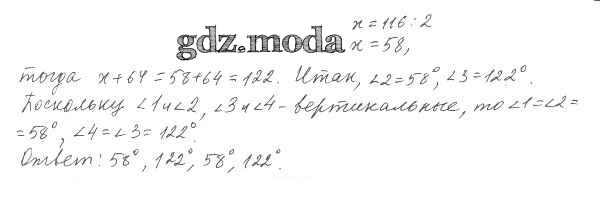 x = 116 : 2
gdz.moda
x = 58,
тогда x + 64 = 58 + 64 = 122. Итак, ∠2 = 58°, ∠3 = 122°.
Поскольку ∠1 и ∠2, ∠3 и ∠4 - вертикальные, то ∠1 = ∠2 =
= 58°, ∠4 = ∠3 = 122°.
Ответ: 58°, 122°, 58°, 122°.